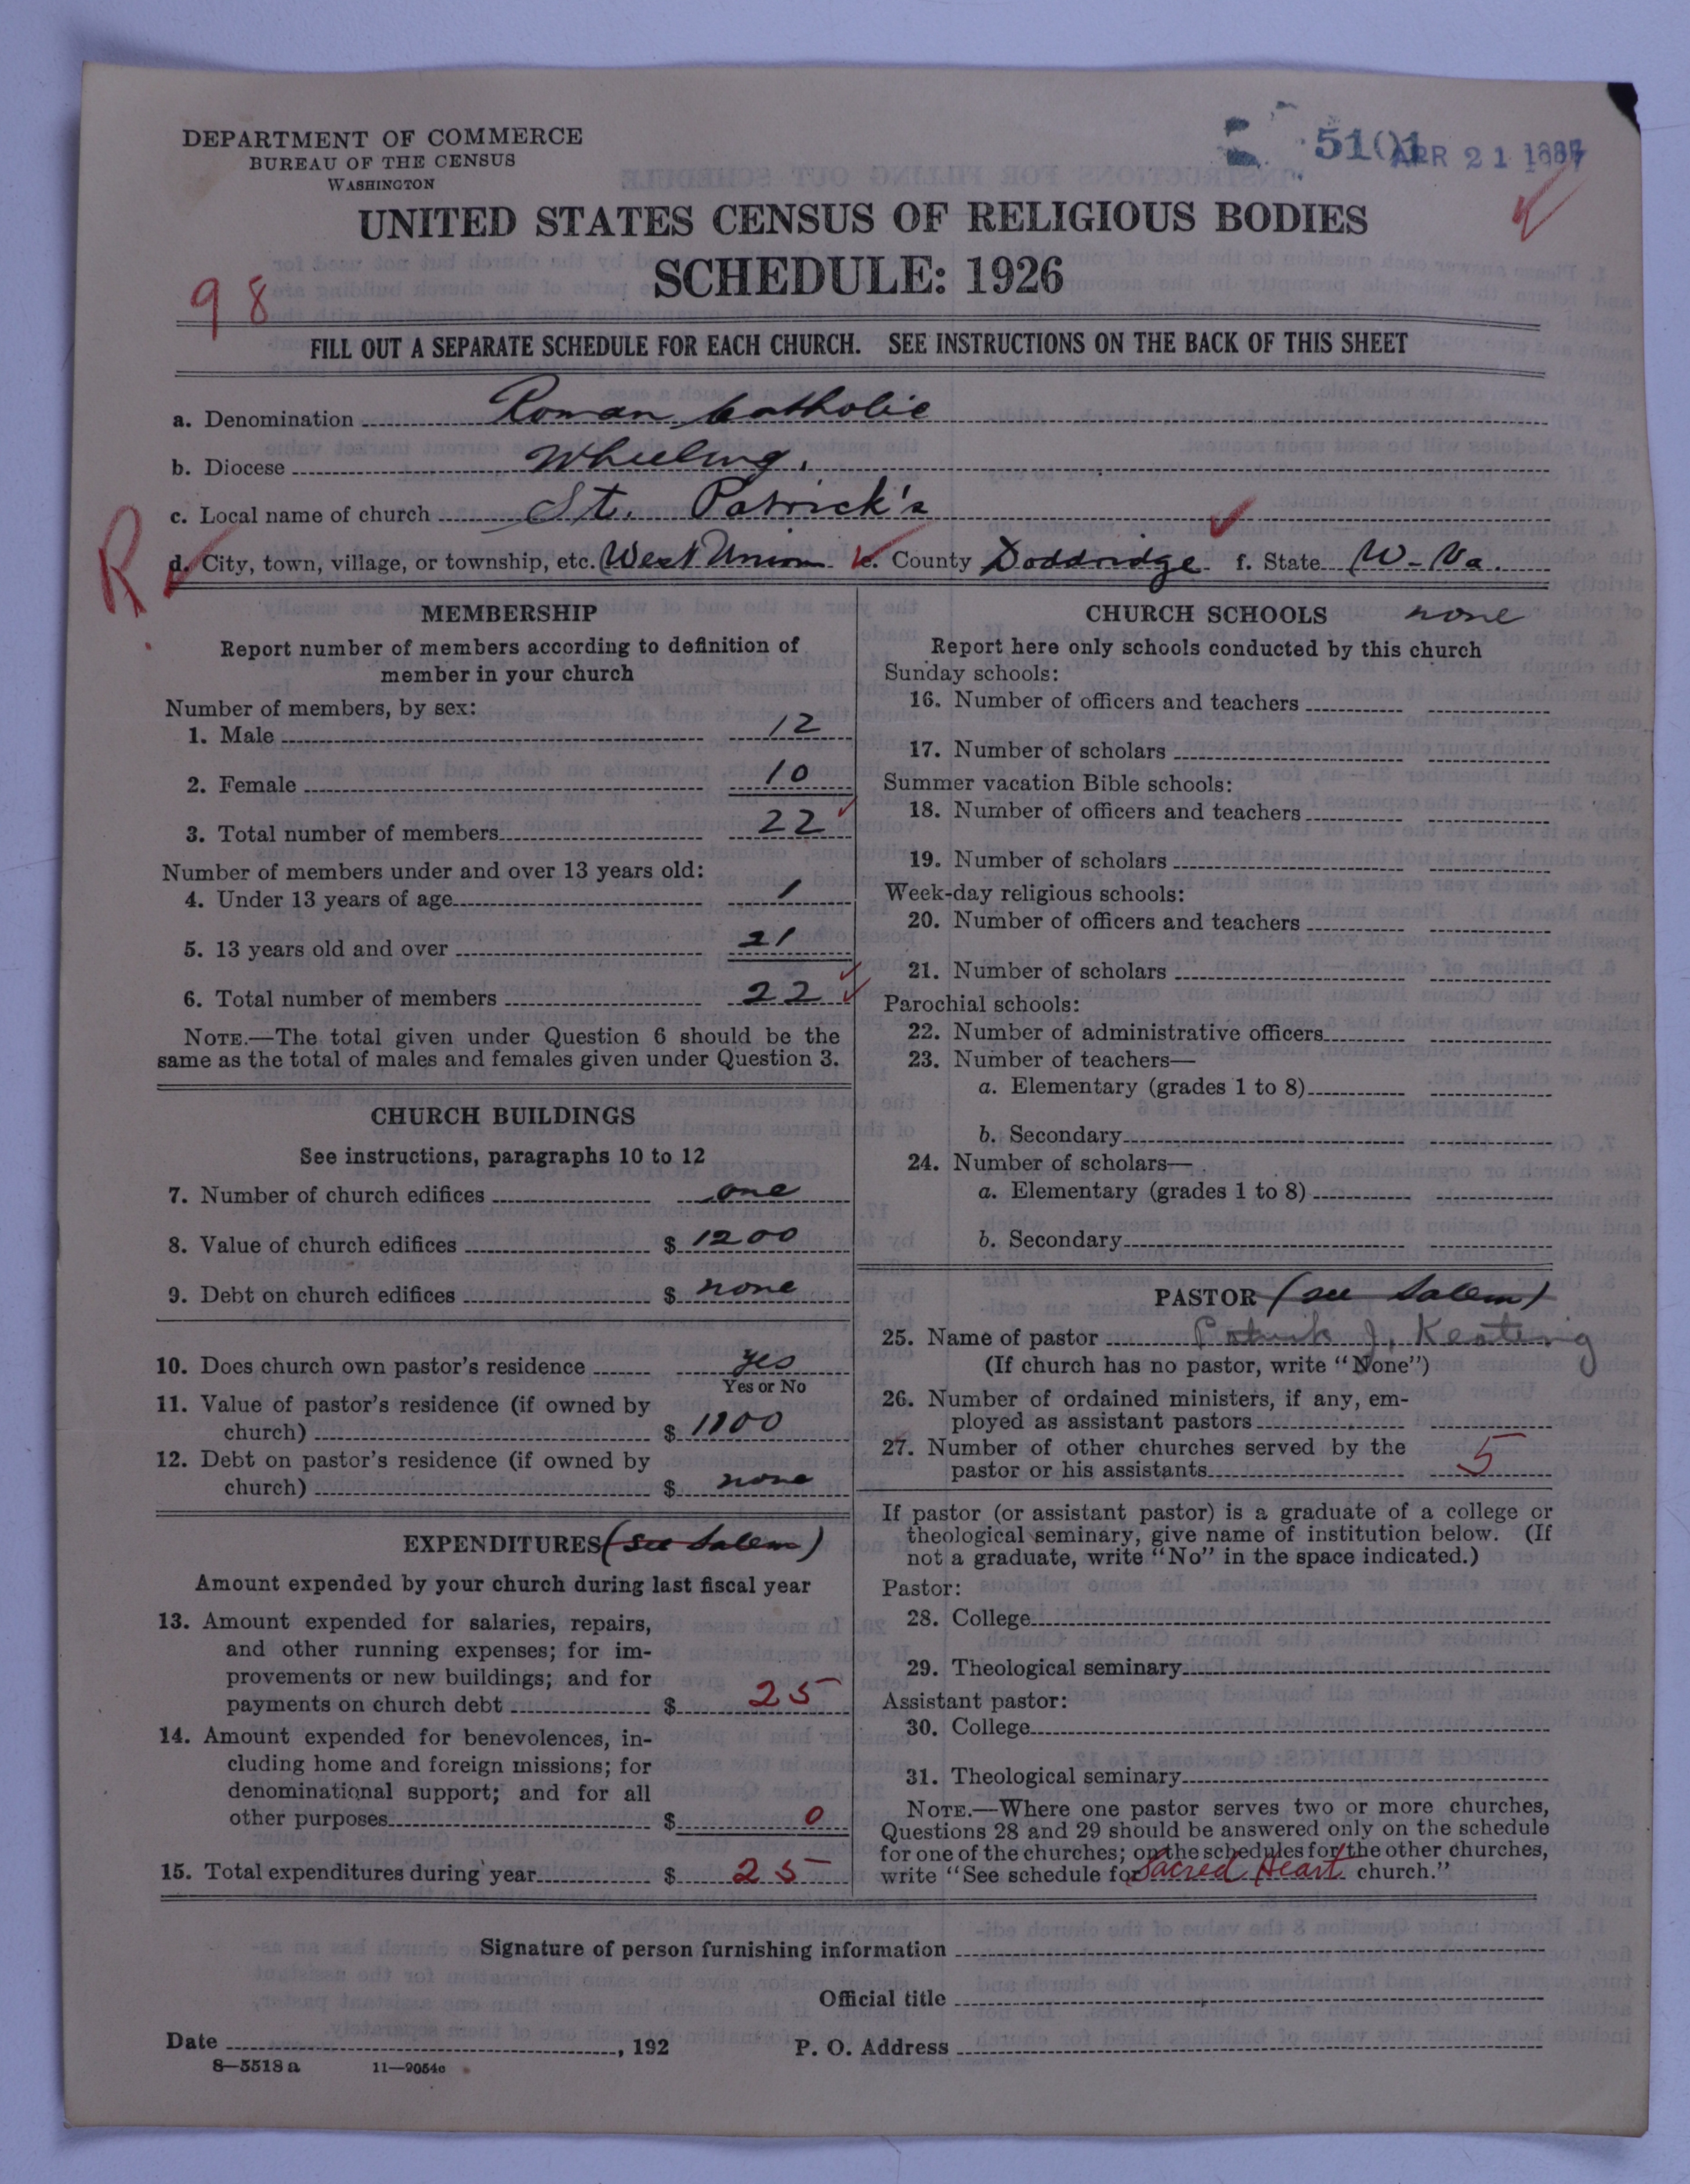 DEPARTMENT OF COMMERCE
BUREAU OF THE CENSUS
WASHINGTON
5101
APR 21
UNITED STATES CENSUS OF RELIGIOUS BODIES
SCHEDULE: 1926
98
FILL OUT A SEPARATE SCHEDULE FOR EACH CHURCH. SEE INSTRUCTIONS ON THE BACK OF THIS SHEET
a. Denomination Roman Catholic
b. Diocese Wheeling.
c. Local name of church St. Patrick's
R
d. City, town, village, or township, etc. West Union e. County Doddridge f. State W-Va.
MEMBERSHIP
Report number of members according to definition of
member in your church
Number of members, by sex:
1. Male 12
2. Female 10
3. Total number of members 22
Number of members under and over 13 years old:
4. Under 13 years of age 1
5. 13 years old and over 21
6. Total number of members 22
NOTE.—The total given under Question 6 should be the
same as the total of males and females given under Question 3.
CHURCH BUILDINGS
See instructions, paragraphs 10 to 12
7. Number of church edifices one
8. Value of church edifices $ 1200
9. Debt on church edifices $ none
10. Does church own pastor's residence yes
Yes or No
11. Value of pastor's residence (if owned by
church) $ 1100
12. Debt on pastor's residence (if owned by
church) $ none
EXPENDITURES (see Salem)
Amount expended by your church during last fiscal year
13. Amount expended for salaries, repairs,
and other running expenses; for im-
provements or new buildings; and for
payments on church debt $ 25
14. Amount expended for benevolences, in-
cluding home and foreign missions; for
denominational support; and for all
other purposes $ 0
15. Total expenditures during year $ 25
CHURCH SCHOOLS none
Report here only schools conducted by this church
Sunday schools:
16. Number of officers and teachers
17. Number of scholars
Summer vacation Bible schools:
18. Number of officers and teachers
19. Number of scholars
Week-day religious schools:
20. Number of officers and teachers
21. Number of scholars
Parochial schools:
22. Number of administrative officers
23. Number of teachers—
a. Elementary (grades 1 to 8)
b. Secondary
24. Number of scholars—
a. Elementary (grades 1 to 8)
b. Secondary
PASTOR (see Salem)
25. Name of pastor Patrick J. Keating
(If church has no pastor, write "None")
26. Number of ordained ministers, if any, em-
ployed as assistant pastors
27. Number of other churches served by the
pastor or his assistants 5
If pastor (or assistant pastor) is a graduate of a college or
theological seminary, give name of institution below. (If
not a graduate, write "No" in the space indicated.)
Pastor:
28. College
29. Theological seminary
Assistant pastor:
30. College
31. Theological seminary
NOTE.—Where one pastor serves two or more churches,
Questions 28 and 29 should be answered only on the schedule
for one of the churches; on the schedules for the other churches,
write "See schedule for Sacred Heart church."
Signature of person furnishing information
Official title
Date , 192 P. O. Address
8—5518 a 11—9054c